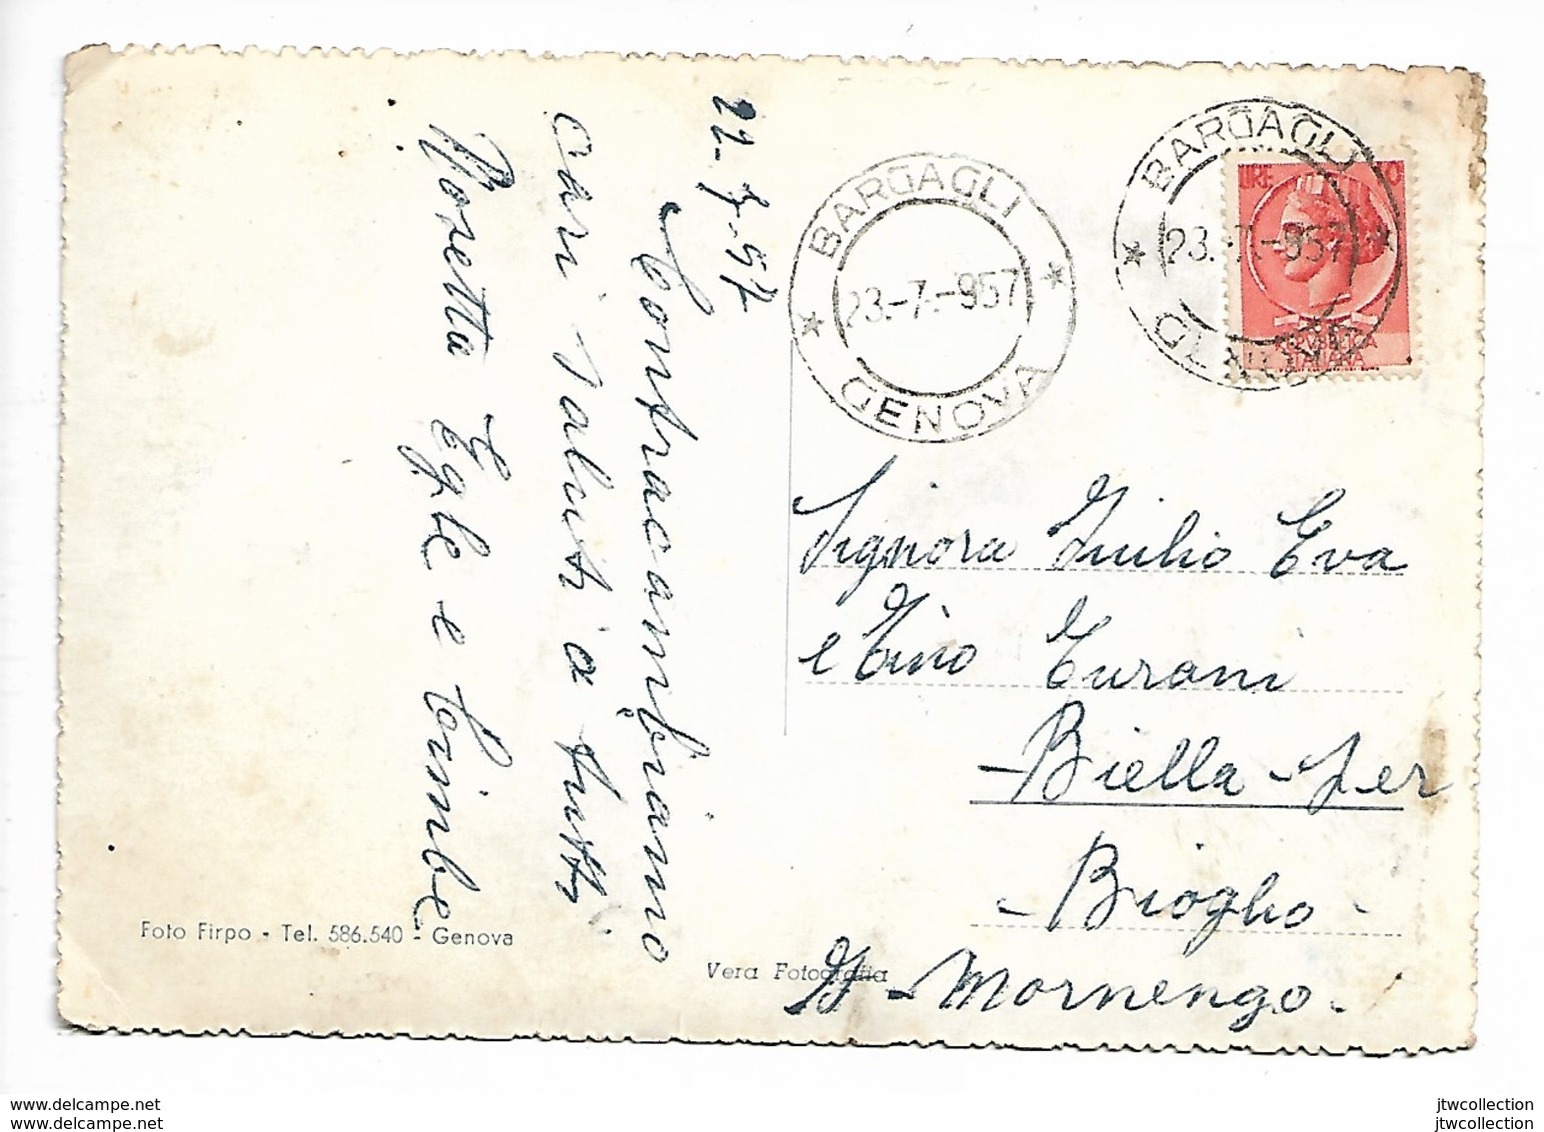 22-7-57
Contraccambiamo
cari saluti a tutti
Rosetta Egle e
BARGAGLI
23.-7.-957
GENOVA
BARGAGLI
23.-7.-957
GENOVA
LIRE
REPUBBLICA
ITALIANA
Signora Giulio Eva
e Tino Turani
- Biella - per
- Bioglio -
- Mornengo.
Foto Firpo - Tel. 586.540 - Genova
Vera Fotografia
www.delcampe.net
www.delcampe.net
jtwcollection
jtwcollection